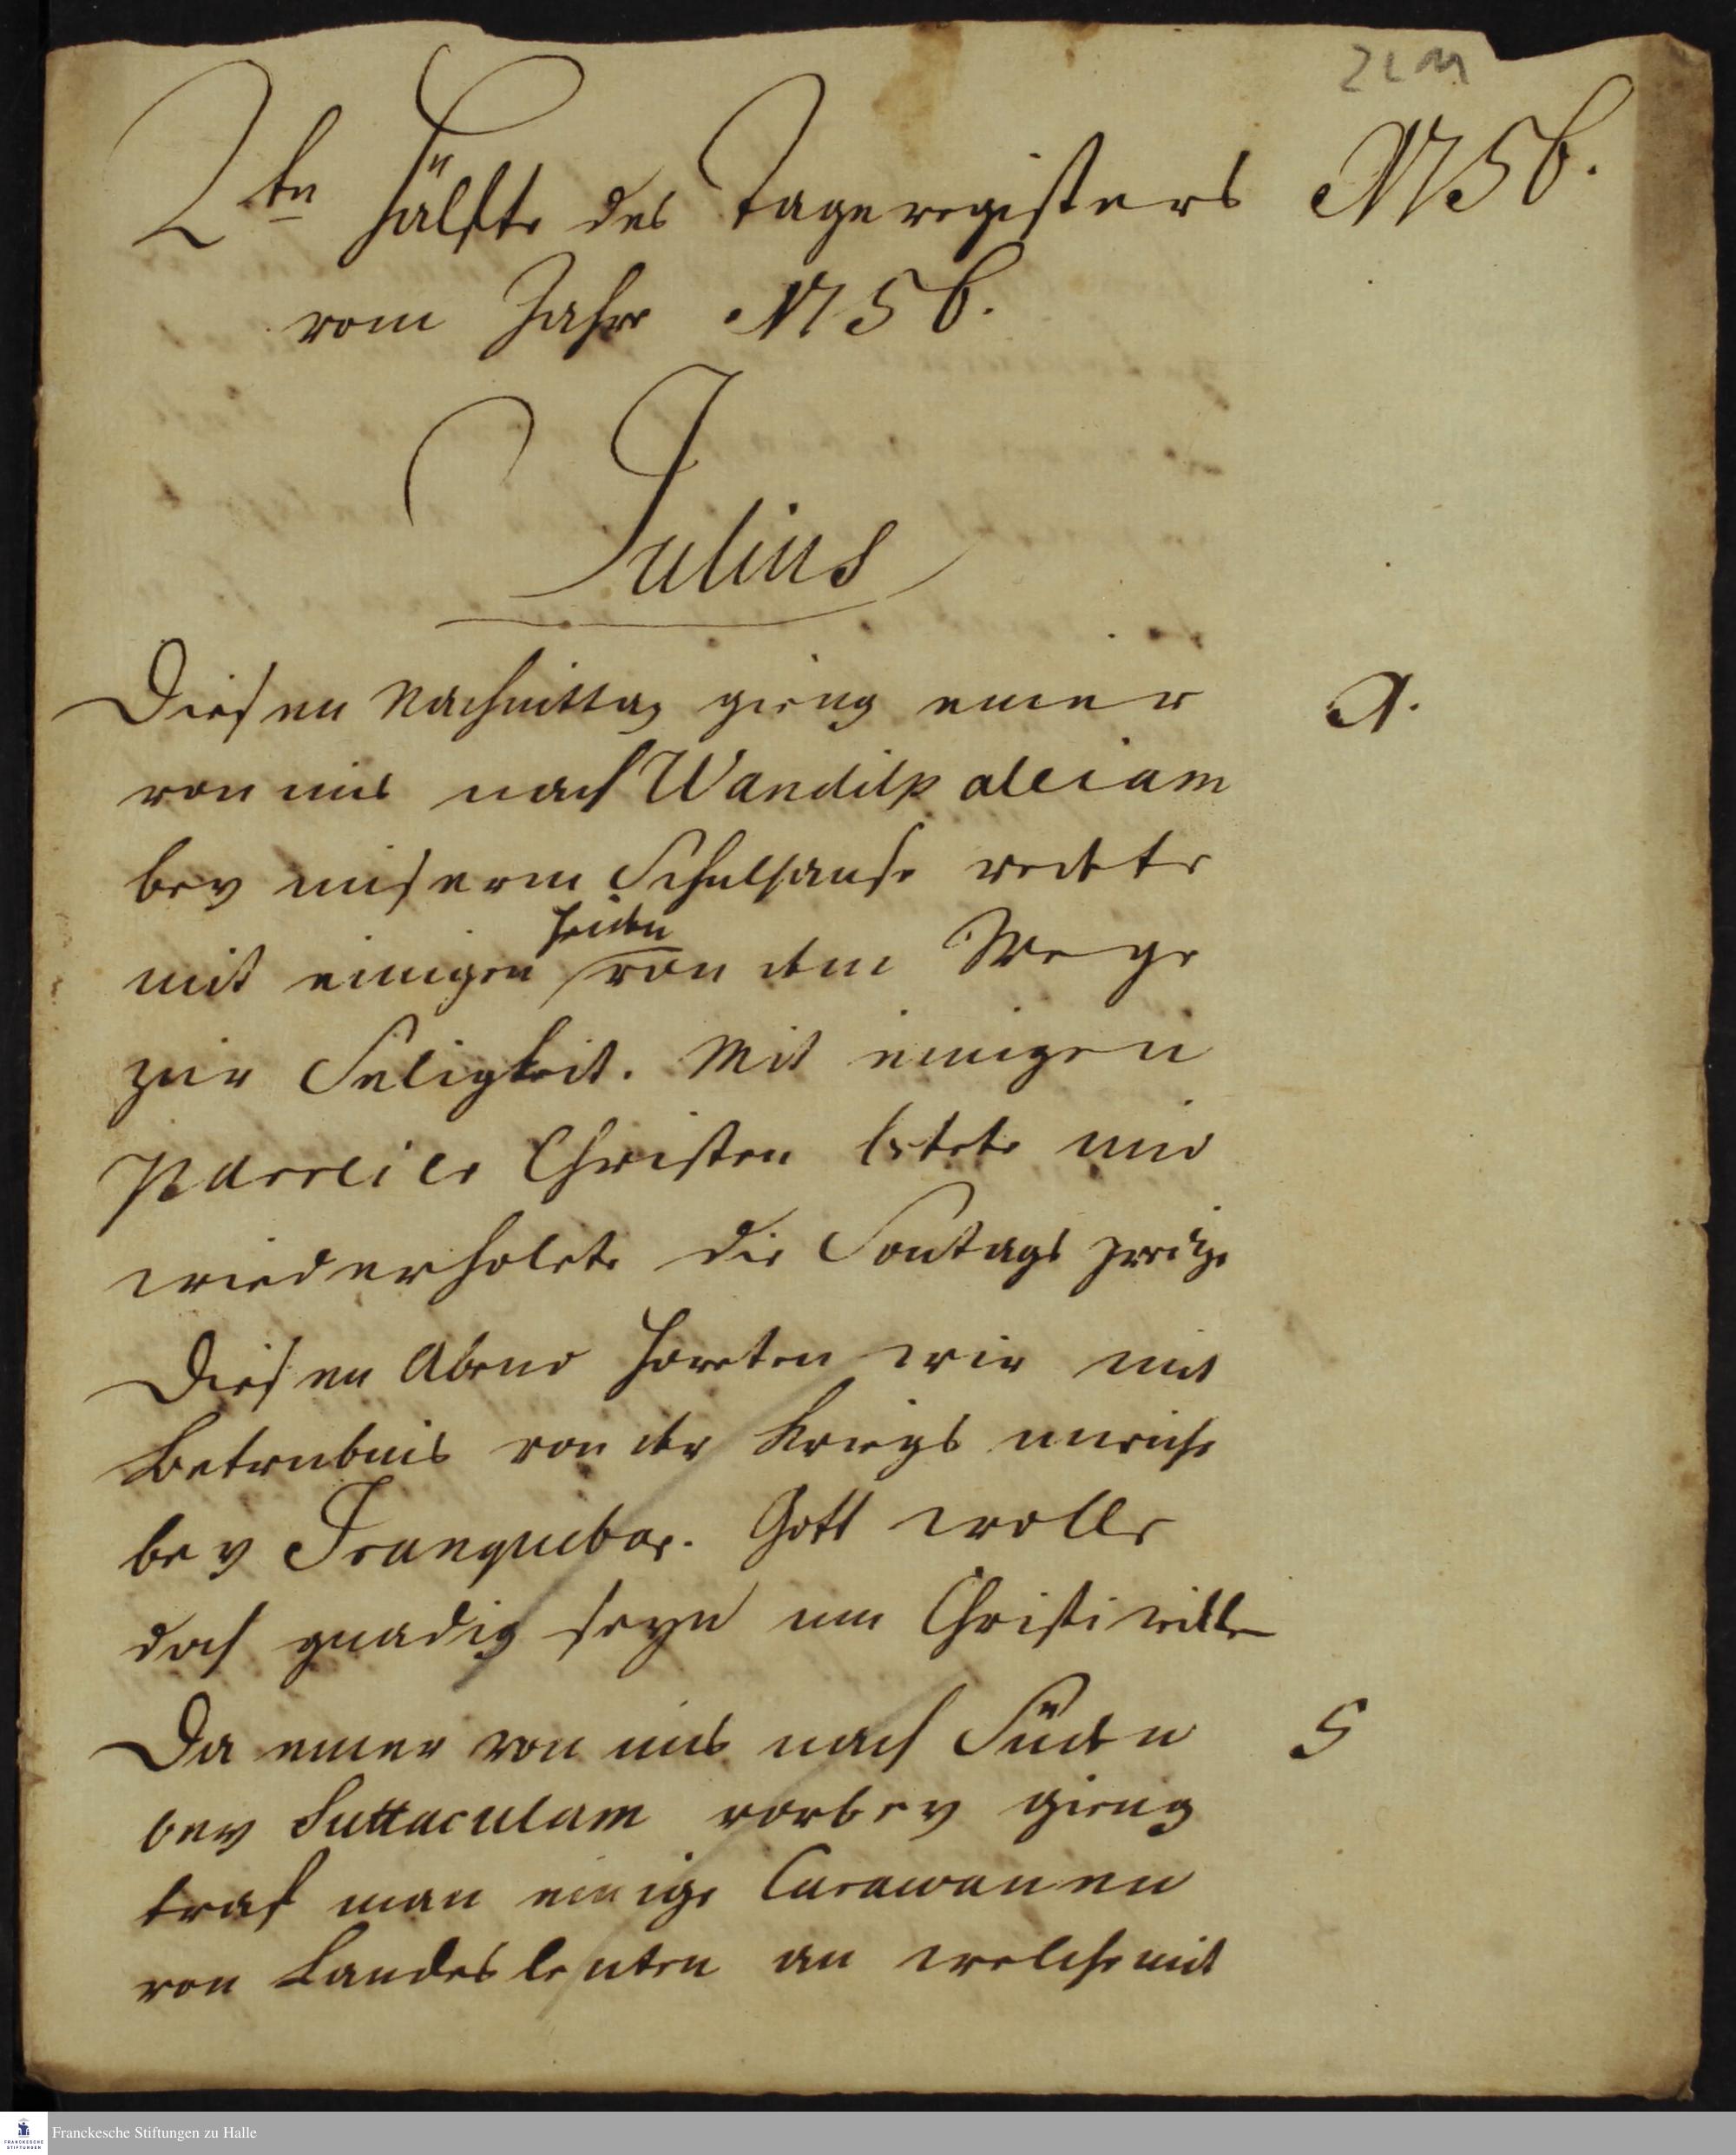 2te Hälfte des Tageregisters 1756.
vom Jahr 1756.
Julius
Diesen Nachmittag gieng einer 1.
von uns nach Wandilpalleiam
bey unserm Schulhause redete
mit einigen Heiden von dem Wege
zur Seligkeit. Mit einigen
Parreier Christen betete und
wiederholete die Sontags predigt
Diesen Abend höreten wir mit
Betrubnis von der Kriegs unruhe
bey Tranquebar. Gott wolle
doch gnadig seyn um Christi willen
Da einer von uns nach Süden 5
bey Suttaculam vorbey gieng
traf man einige Carawanen
von Landesleuten an welche mit
Franckesche Stiftungen zu Halle